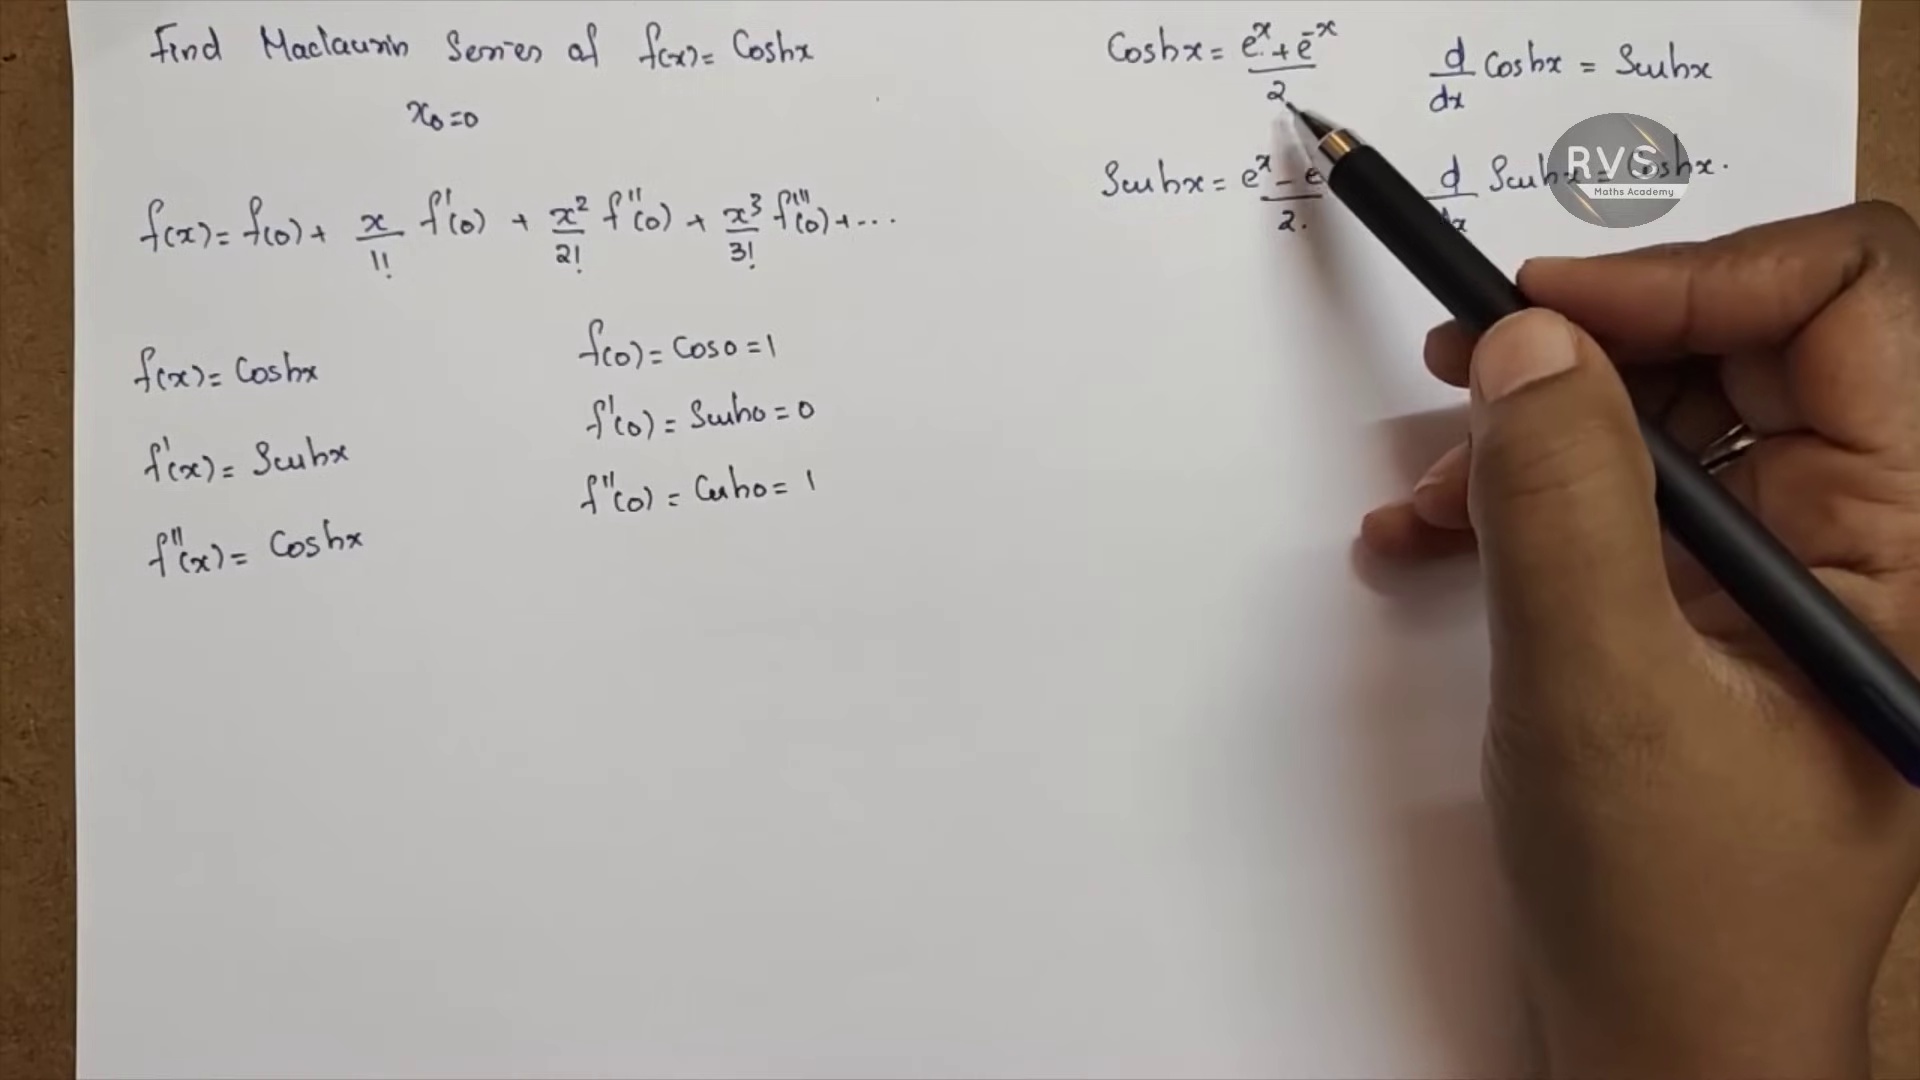 Find Maclaurin Series of f(x) = Coshx
x₀ = 0
f(x) = f(0) + x/1! f'(0) + x²/2! f''(0) + x³/3! f'''(0) + ...
f(x) = Coshx
f'(x) = Sinhx
f''(x) = Coshx
f(0) = Cos0 = 1
f'(0) = Sinh0 = 0
f''(0) = Cosh0 = 1
Coshx = e^x + e^-x / 2
d/dx Coshx = Sinhx
Sinhx = e^x - e / 2.
d/dx Sinhx = Coshx.
RVS
Maths Academy